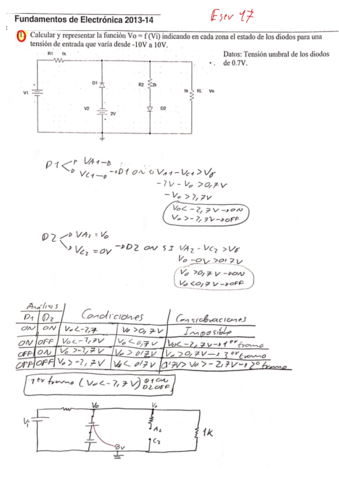 Fundamentos de Electrónica 2013-14
1 Calcular y representar la función Vo = f (Vi) indicando en cada zona el estado de los diodos para una
tensión de entrada que varía desde -10V a 10V.
Datos: Tensión umbral de los diodos
de 0.7V.
R1 1k
D1 R2 2k
V1 1k RL Vo
V2 2V D2
D1 VA1
VC1 → D1 ON si VA1-VC1>Vγ
-2V-Vo>0,7V
-Vo>2,7V
Vo<-2,7V→ON
Vo>-2,7V→OFF
D2 VA2=Vo
VC2=0V → D2 ON SI VA2-VC2>Vγ
Vo-0V>0,7V
Vo>0,7V→ON
Vo<0,7V→OFF
Análisis
D1 D2 Condiciones Consideraciones
ON ON Vo<-2,7 Vo>0,7V Imposible
ON OFF Vo<-2,7V Vo<0,7V Vo<-2,7V→1er tramo
OFF ON Vo>-2,7V Vo>0,7V Vo>0,7V→3er tramo
OFF OFF Vo>-2,7V Vo<0,7V 0,7V>Vo>-2,7V→2º tramo
1er tramo (Vo<-2,7V) D1 ON
D2 OFF
Vo Vo
Vi A2 1K
C2
0V